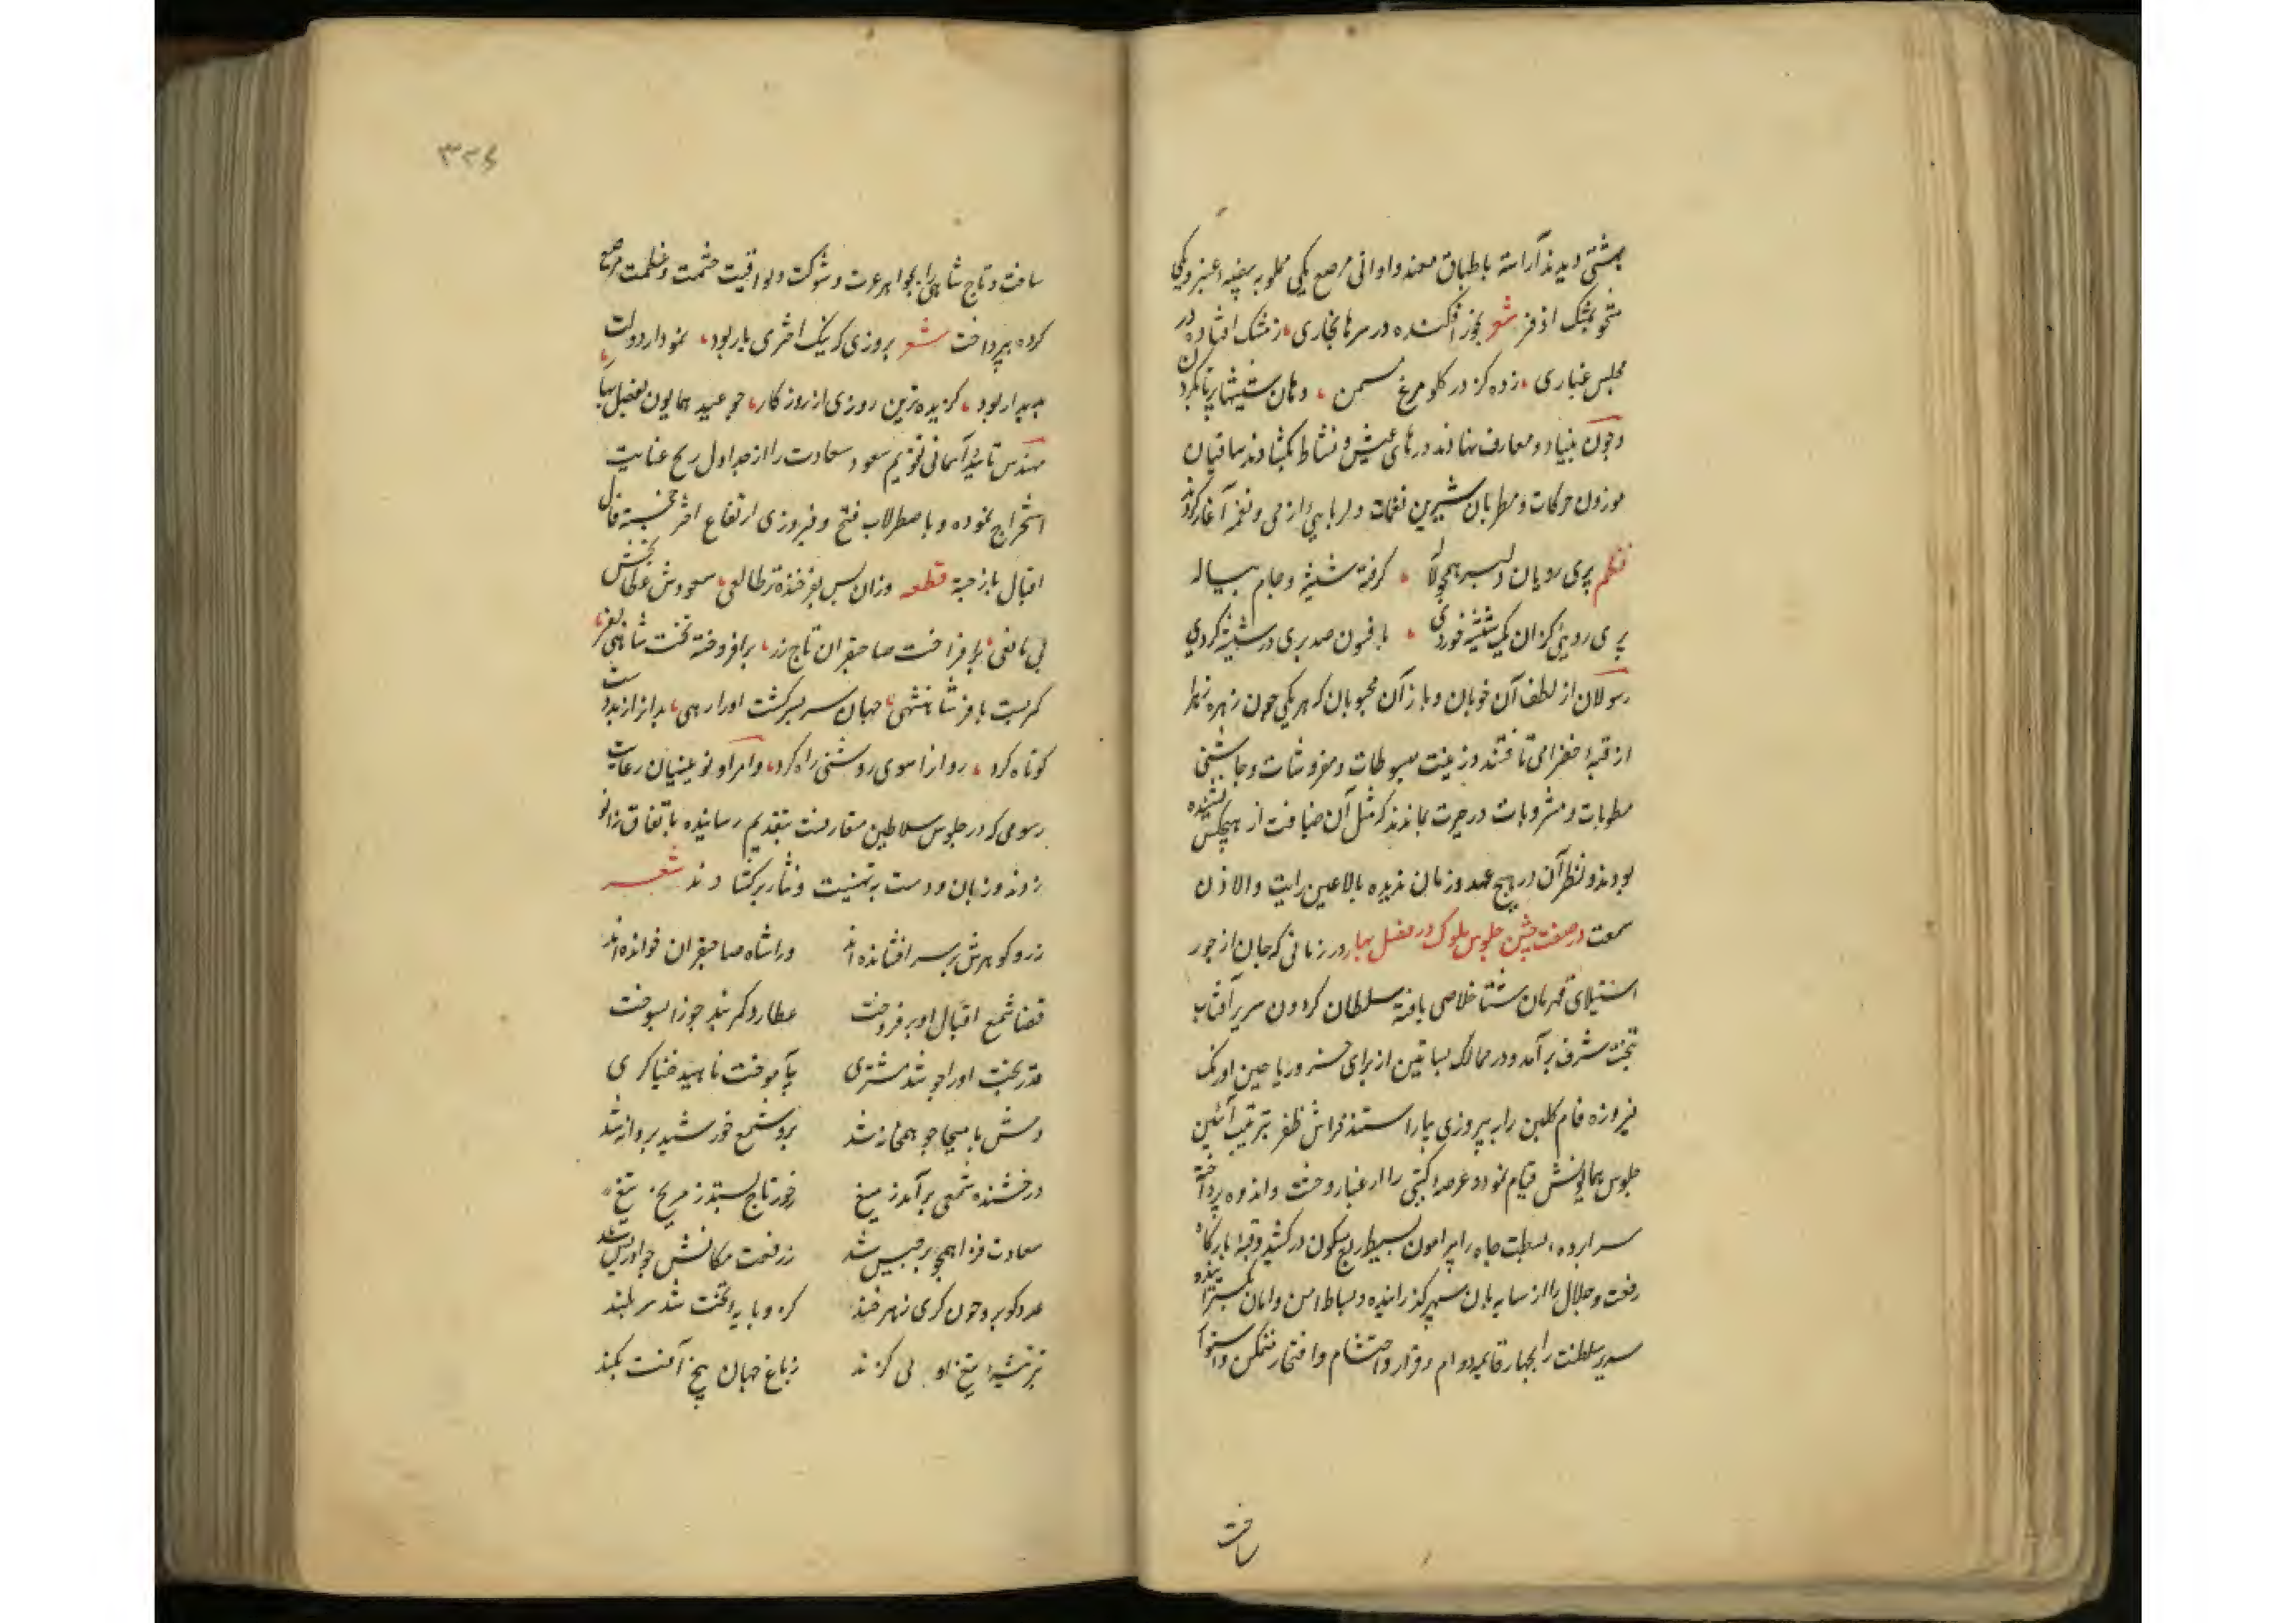 بهشتی دیدند آراسته باطباق معنبر و اوانی مرصع یکی مملو به بیضهٔ عنبر و یکی
محشو بمشک اذفر شعر بخور افکنده در سرها بخاری، ز مشک افتاده در
مجلس غباری، زده کز در کلو مرغ مسمن، دهان شیشها پر تا بکردن
و چون بنیاد و معارف نهادند درهای عیش و نشاط بکشادند ساقیان
موزون حرکات و مطربان شیرین نغمات دلربایی از می و نغمه آغاز کردند
نظم پری رویان دلبر همچو لاله، کرفته شیشه و جام پیاله
پری رویی کزان یک شیشه خوردی، بافسون صد پری در شیشه کردی
رسولان از لطف آن خوبان و ناز آن محبوبان که هر یکی چون زهره زهرا
از قبهٔ خضرا می تافتند و زینت مبسوطات و مفروشات و چاشنی
مطعومات و مشروبات در حیرت بماندند که مثل آن ضیافت از هیچکس نشنیده
بودند و نظیر آن در هیچ عهد و زمان ندیده بالاعین رایت و لا اذن
سمعت در صفت جشن جلوس ملوک در فصل بهار در زمانی که جهان از جور
استیلای قهرمان شتا خلاصی یافته سلطان کردون سریر آفتاب
بتخت شرف برآمد و در ممالک بساتین از برای خسرو ریاحین اورنک
فیروزه فام کلبن را به پیروزی بیاراستند فراش ظفر بترتیب آئین
جلوس همایونش قیام نمود و عرصهٔ کیتی را از غبار وحشت و اندوه پرداخته
سراپرده بسطت جاه را پیرامون بسیط ربع مسکون درکشید و قبهٔ بارکاه
رفعت و جلال را از سایه بان سپهر کذرانیده و بساط امن و امان بکسترانیده
سریر سلطنت را بچهار قایمه دوام و قرار و احتشام و افتخار متمکن و استوار
ساخت
۳۲۶
ساخت و تاج شاهی را بجواهر عزت و شوکت و یواقیت حشمت و عظمت مرصع
کرده بپرداخت شعر بروزی که نیک اختری یار بود، نمودار دولت
پدیدار بود، کزیده ترین روزی از روزکار، چو عید همایون بفصل بهار،
مهندس تایید آسمانی تقویم سعود سعادت را از جداول زیج عنایت
استخراج نموده و باصطرلاب فتح و فیروزی ارتفاع اختر خجسته فال
اقبال باز جسته قطعه وزان پس بفرخنده تر طالعی، سعودش عطا بخش
بی مانعی، برافراخت صاحبقران تاج زر، برافروخته تخت شاهی بفر،
کمر بست با فر شاهنشهی، جهان سر بسر کشت او را رهی، بد از از بد دست
کوتاه کرد، روانرا سوی روشنی راه کرد، و امرا و نوئینان رعایت
رسومی که در جلوس سلاطین متعارفست بتقدیم رسانیده باتفاق زانو
زدند و زبان و دست به تهنیت و نثار برکشادند شعر
زر و کوهرش بر سر افشانده اند ورا شاه صاحبقران خوانده اند
قضا شمع اقبال او برفروخت عطارد کمر بند جوزا بسوخت
قدر بخت او را چو شد مشتری بیآموخت ناهید خنیاکری
دمش با مسیحا چو همخانه شد برو شمع خورشید پروانه شد
درخشنده شمعی برآمد ز میغ ز خور تاج بستد ز مریخ تیغ
سعادت فزا همچو برجیس شد ز رفعت مکانش چو ادریس شد
عدو کو برو چون کری زهرخند کزو پایهٔ تخت شد سربلند
تبر تیشهٔ تیغ او بی کزند ز باغ جهان بیخ آفت بکند